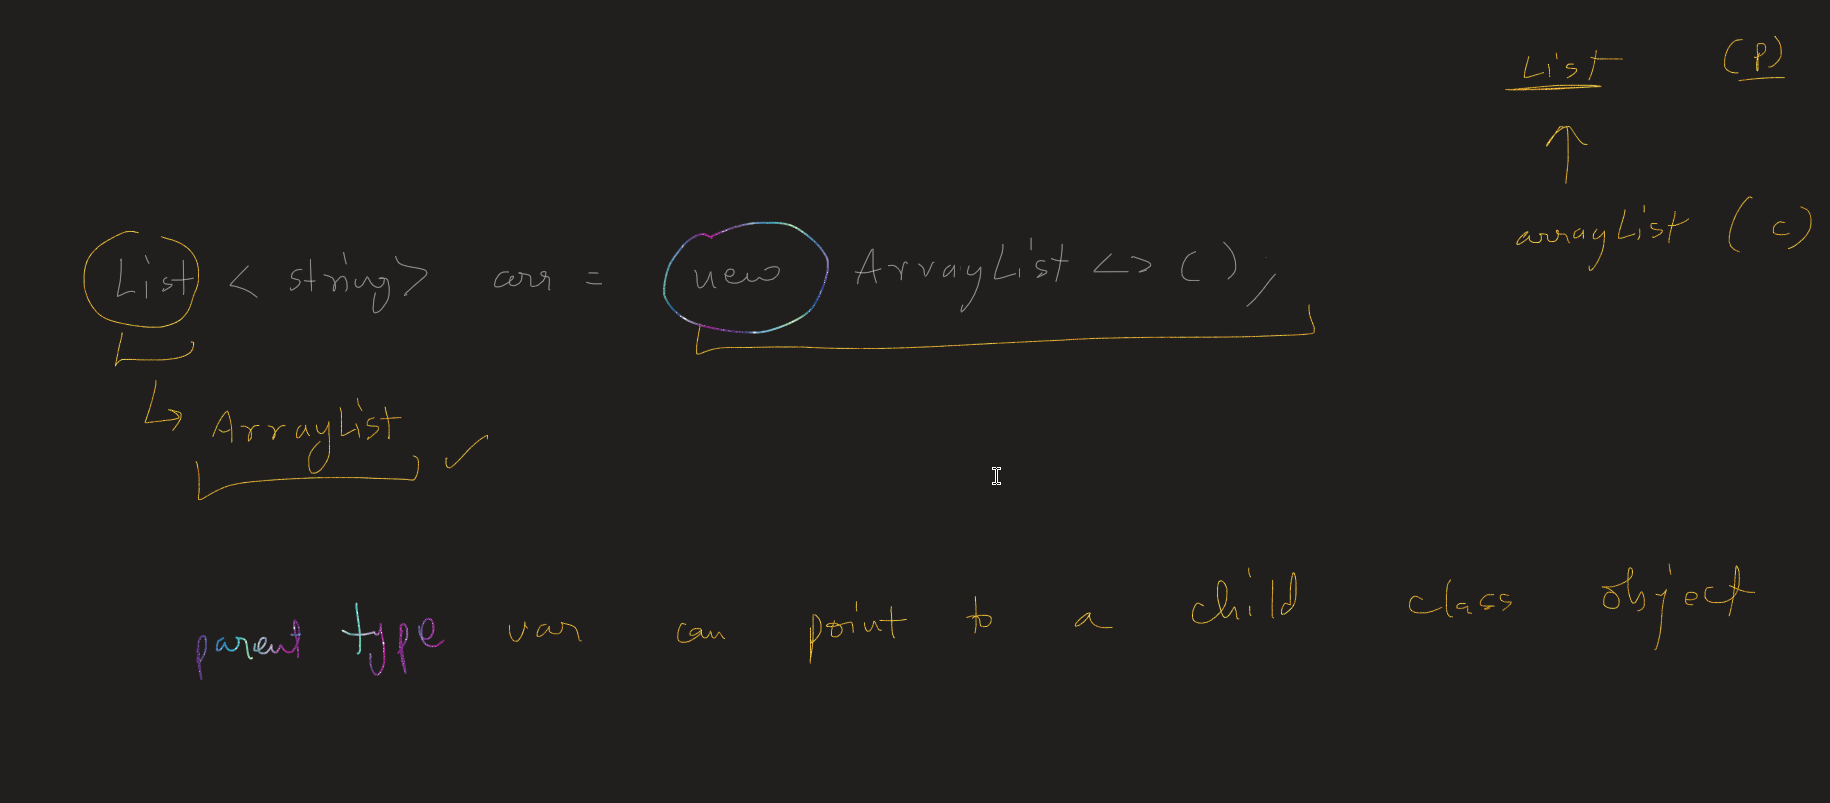 List (P)
arrayList (c)
List < string> arr = new ArrayList <> ();
ArrayList
parent type var can point to a child class object